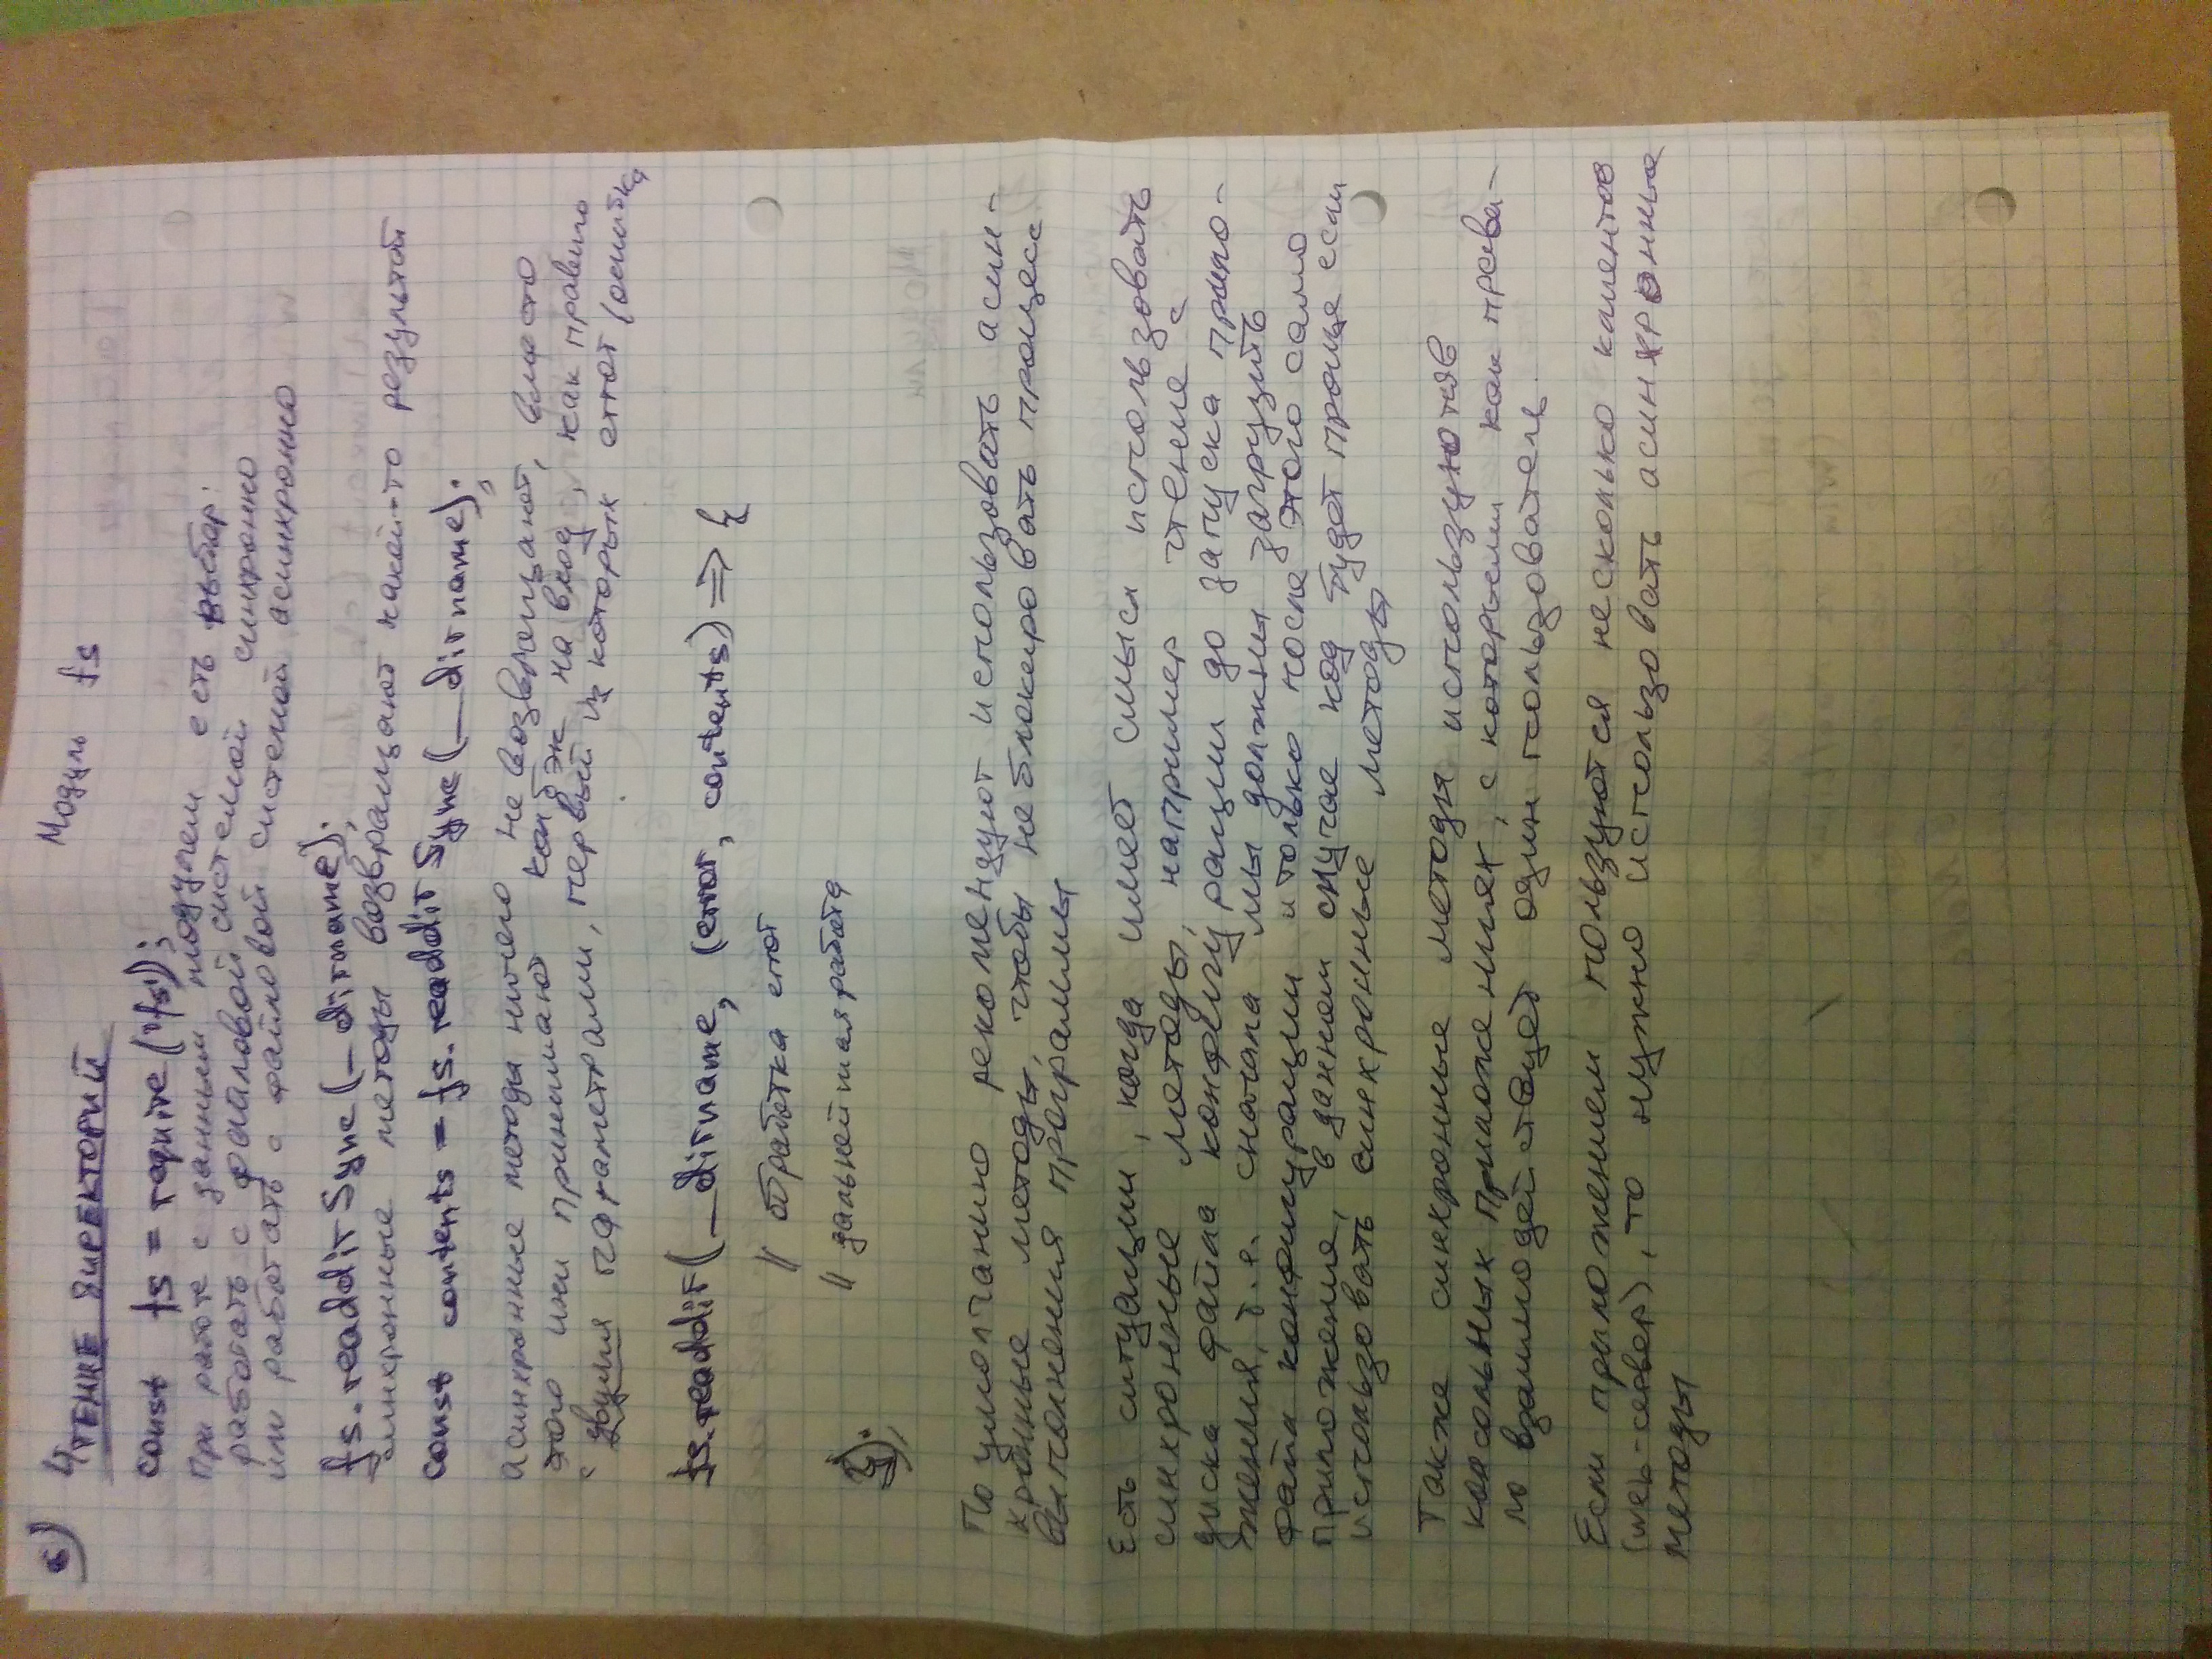 6) Чтение директорий Модуль fs
const fs = require('fs');
При работе с данным модулем есть выбор:
работать с файловой системой синхронно
или работать с файловой системой асинхронно
fs.readdirSync(__dirname);
синхронные методы возвращают какой-то результат
const contents = fs.readdirSync(__dirname);
асинхронные методы ничего не возвращают, вместо
этого они принимают колбэк на вход, как правило
с двумя параметрами, первый из которых error (ошибка
fs.readdir(__dirname, (error, contents) => {
// обработка error
// дальнейшая работа
});
По умолчанию рекомендуют использовать асин-
хронные методы, чтобы не блокировать процесс
выполнения программы
Есть ситуации, когда имеет смысл использовать
синхронные методы, например чтение с
диска файла конфигурации до запуска прило-
жения, т.е. сначала мы должны загрузить
файл конфигурации и только после этого само
приложение, в данном случае код будет проще если
использовать синхронные методы
Также синхронные методы используются в
консольных приложениях, с которыми как прави-
ло взаимодействует один пользователь.
Если приложением пользуются несколько клиентов
(web-сервер), то нужно использовать асинхронные
методы